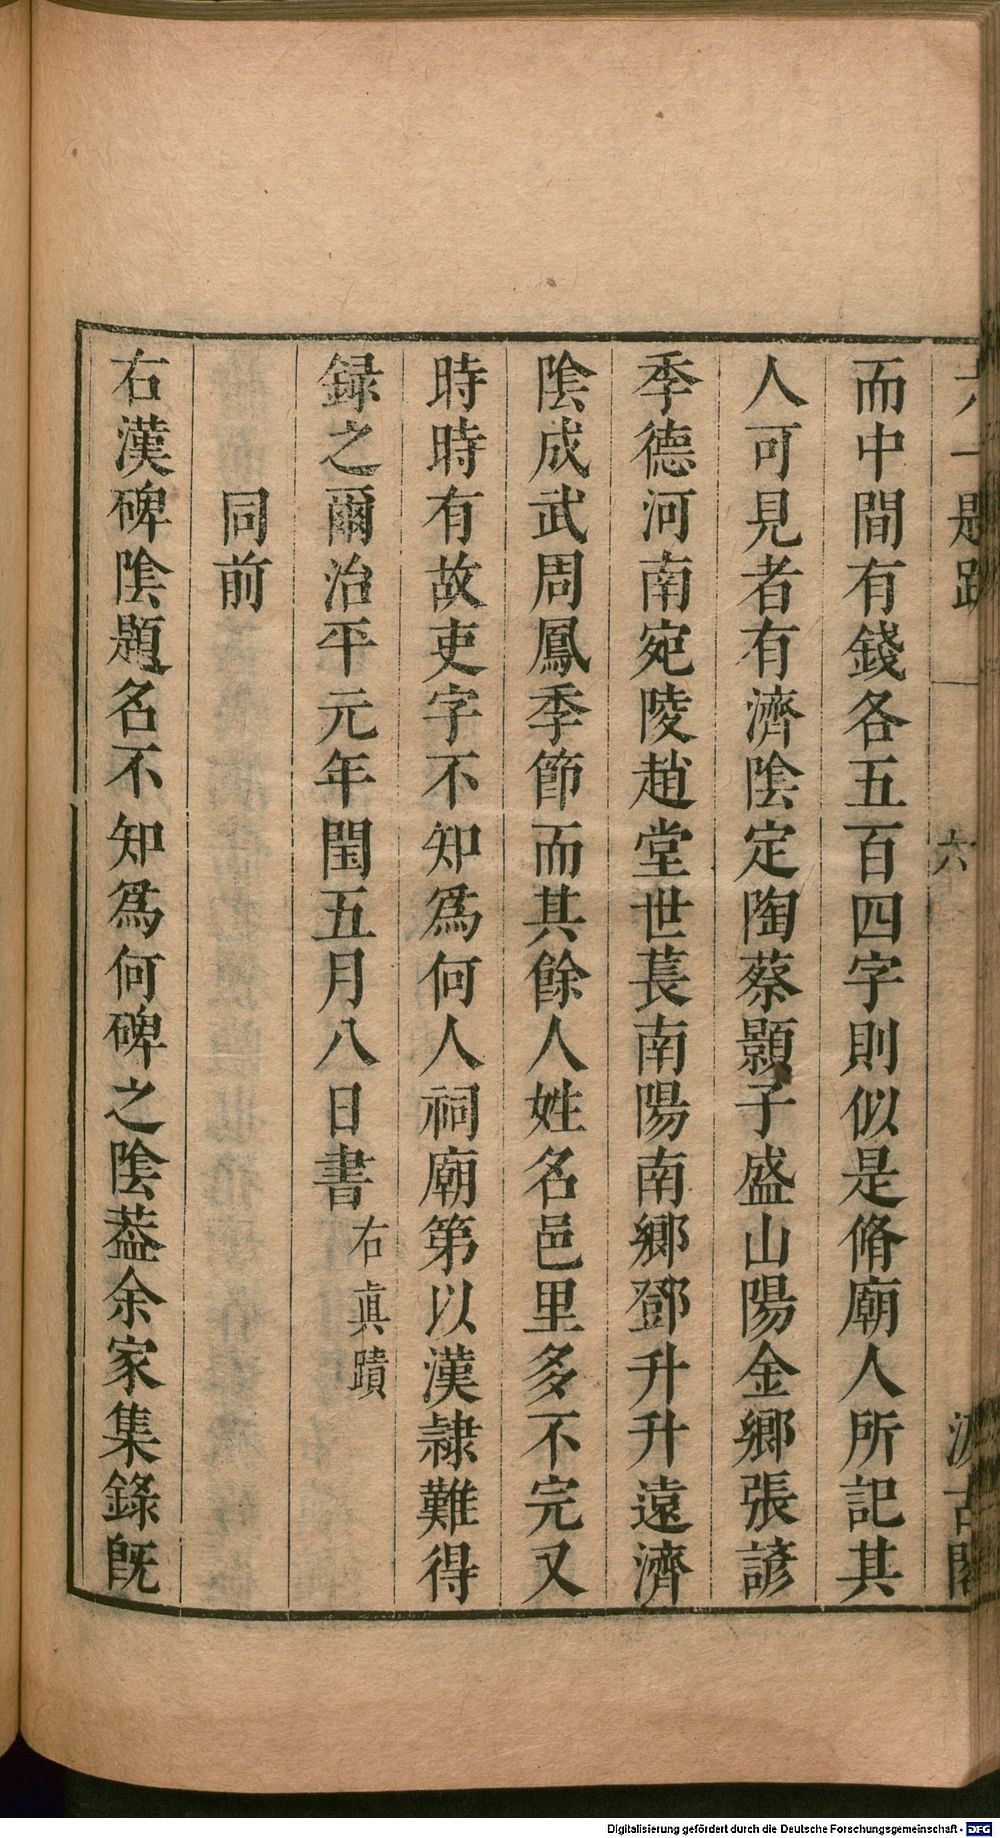 六一題跋 六 汲古閣
而中間有錢各五百四字則似是脩廟人所記其
人可見者有濟隂定陶蔡顥子盛山陽金鄉張諺
季德河南宛陵趙堂世萇南陽南鄉鄧升升遠濟
隂成武周鳳季節而其餘人姓名邑里多不完又
時時有故吏字不知爲何人祠廟第以漢隷難得
録之爾治平元年閏五月八日書右眞蹟
同前
右漢碑隂題名不知爲何碑之隂葢余家集錄旣
Digitalisierung gefördert durch die Deutsche Forschungsgemeinschaft - DFG